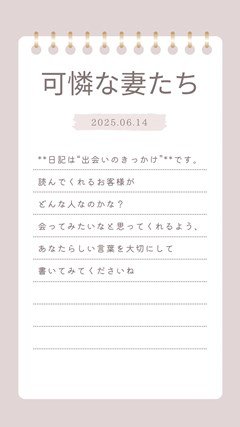 可憐な妻たち
2025.06.14
**日記は“出会いのきっかけ”**です。
読んでくれるお客様が
どんな人なのかな？
会ってみたいなと思ってくれるよう、
あなたらしい言葉を大切にして
書いてみてくださいね